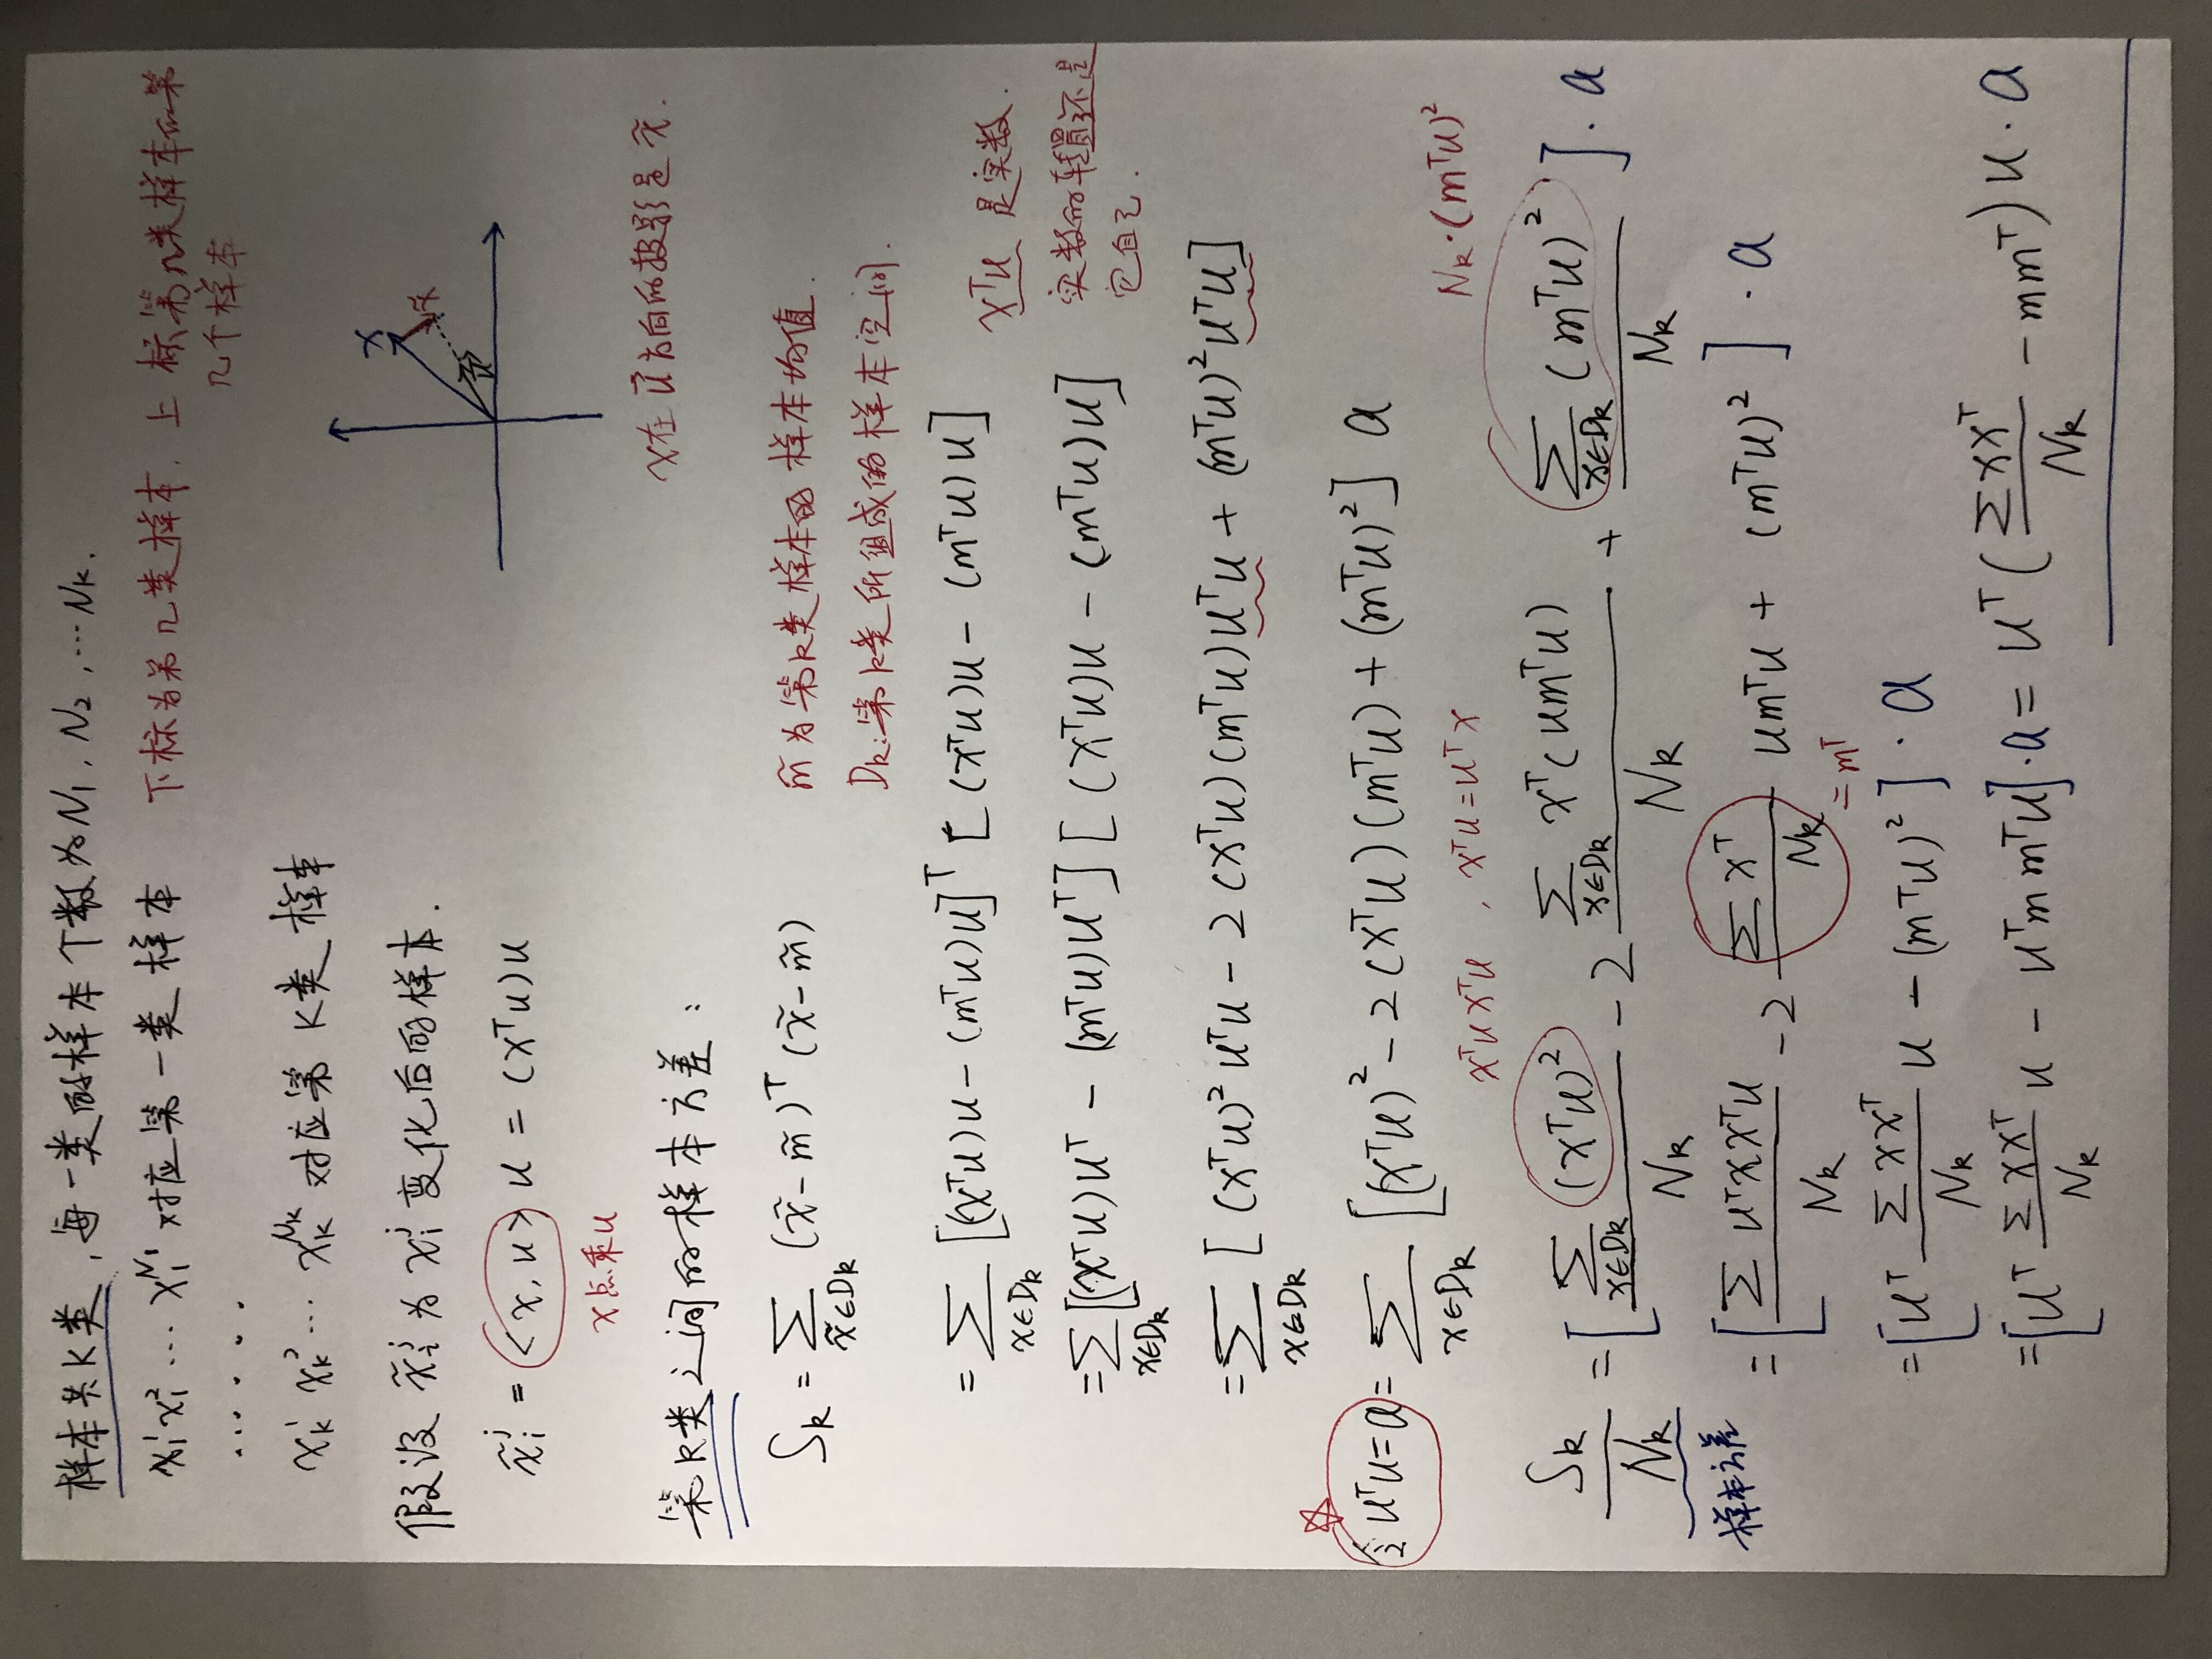 样本共K类，每一类的样本个数为N₁, N₂, …N_k.
x₁¹ x₁² … x₁^{N₁} 对应第一类样本
下标为第几类样本，上标第几类样本的第
几个样本
· · · · ·
x_k¹ x_k² … x_k^{N_k} 对应第K类样本
假设 x̃ᵢʲ 为 xᵢʲ 变化后的样本.
x̃ᵢʲ = <x, u> u = (xᵀu)u
x点乘u
x
x̃
x在u⃗方向的投影是x̃.
第k类之间的样本方差：
m̃为第k类样本的样本均值.
D_k: 第k类所组成的样本空间.
S_k = Σ_{x̃∈D_k} (x̃-m̃)ᵀ(x̃-m̃)
= Σ_{x∈D_k} [(xᵀu)u-(mᵀu)u]ᵀ[(xᵀu)u-(mᵀu)u]
xᵀu 是实数.
实数的转置还是
它自己.
= Σ_{x∈D_k} [(xᵀu)uᵀ - (mᵀu)uᵀ][(xᵀu)u-(mᵀu)u]
= Σ_{x∈D_k} [(xᵀu)²uᵀu-2(xᵀu)(mᵀu)uᵀu+(mᵀu)²uᵀu]
☆
令uᵀu=a = Σ_{x∈D_k} [(xᵀu)²-2(xᵀu)(mᵀu)+(mᵀu)²] a
xᵀuxᵀu , xᵀu=uᵀx
N_k·(mᵀu)²
S_k/N_k = [Σ_{x∈D_k}(xᵀu)²/N_k - 2 Σ_{x∈D_k} xᵀ(umᵀu)/N_k + Σ_{x∈D_k}(mᵀu)²/N_k]·a
样本方差
= [Σuᵀxxᵀu/N_k - 2 Σxᵀ/N_k umᵀu + (mᵀu)²]·a
=mᵀ
= [uᵀ Σxxᵀ/N_k u - (mᵀu)²]·a
= [uᵀ Σxxᵀ/N_k u - uᵀmmᵀu]·a = uᵀ(Σxxᵀ/N_k - mmᵀ)u·a